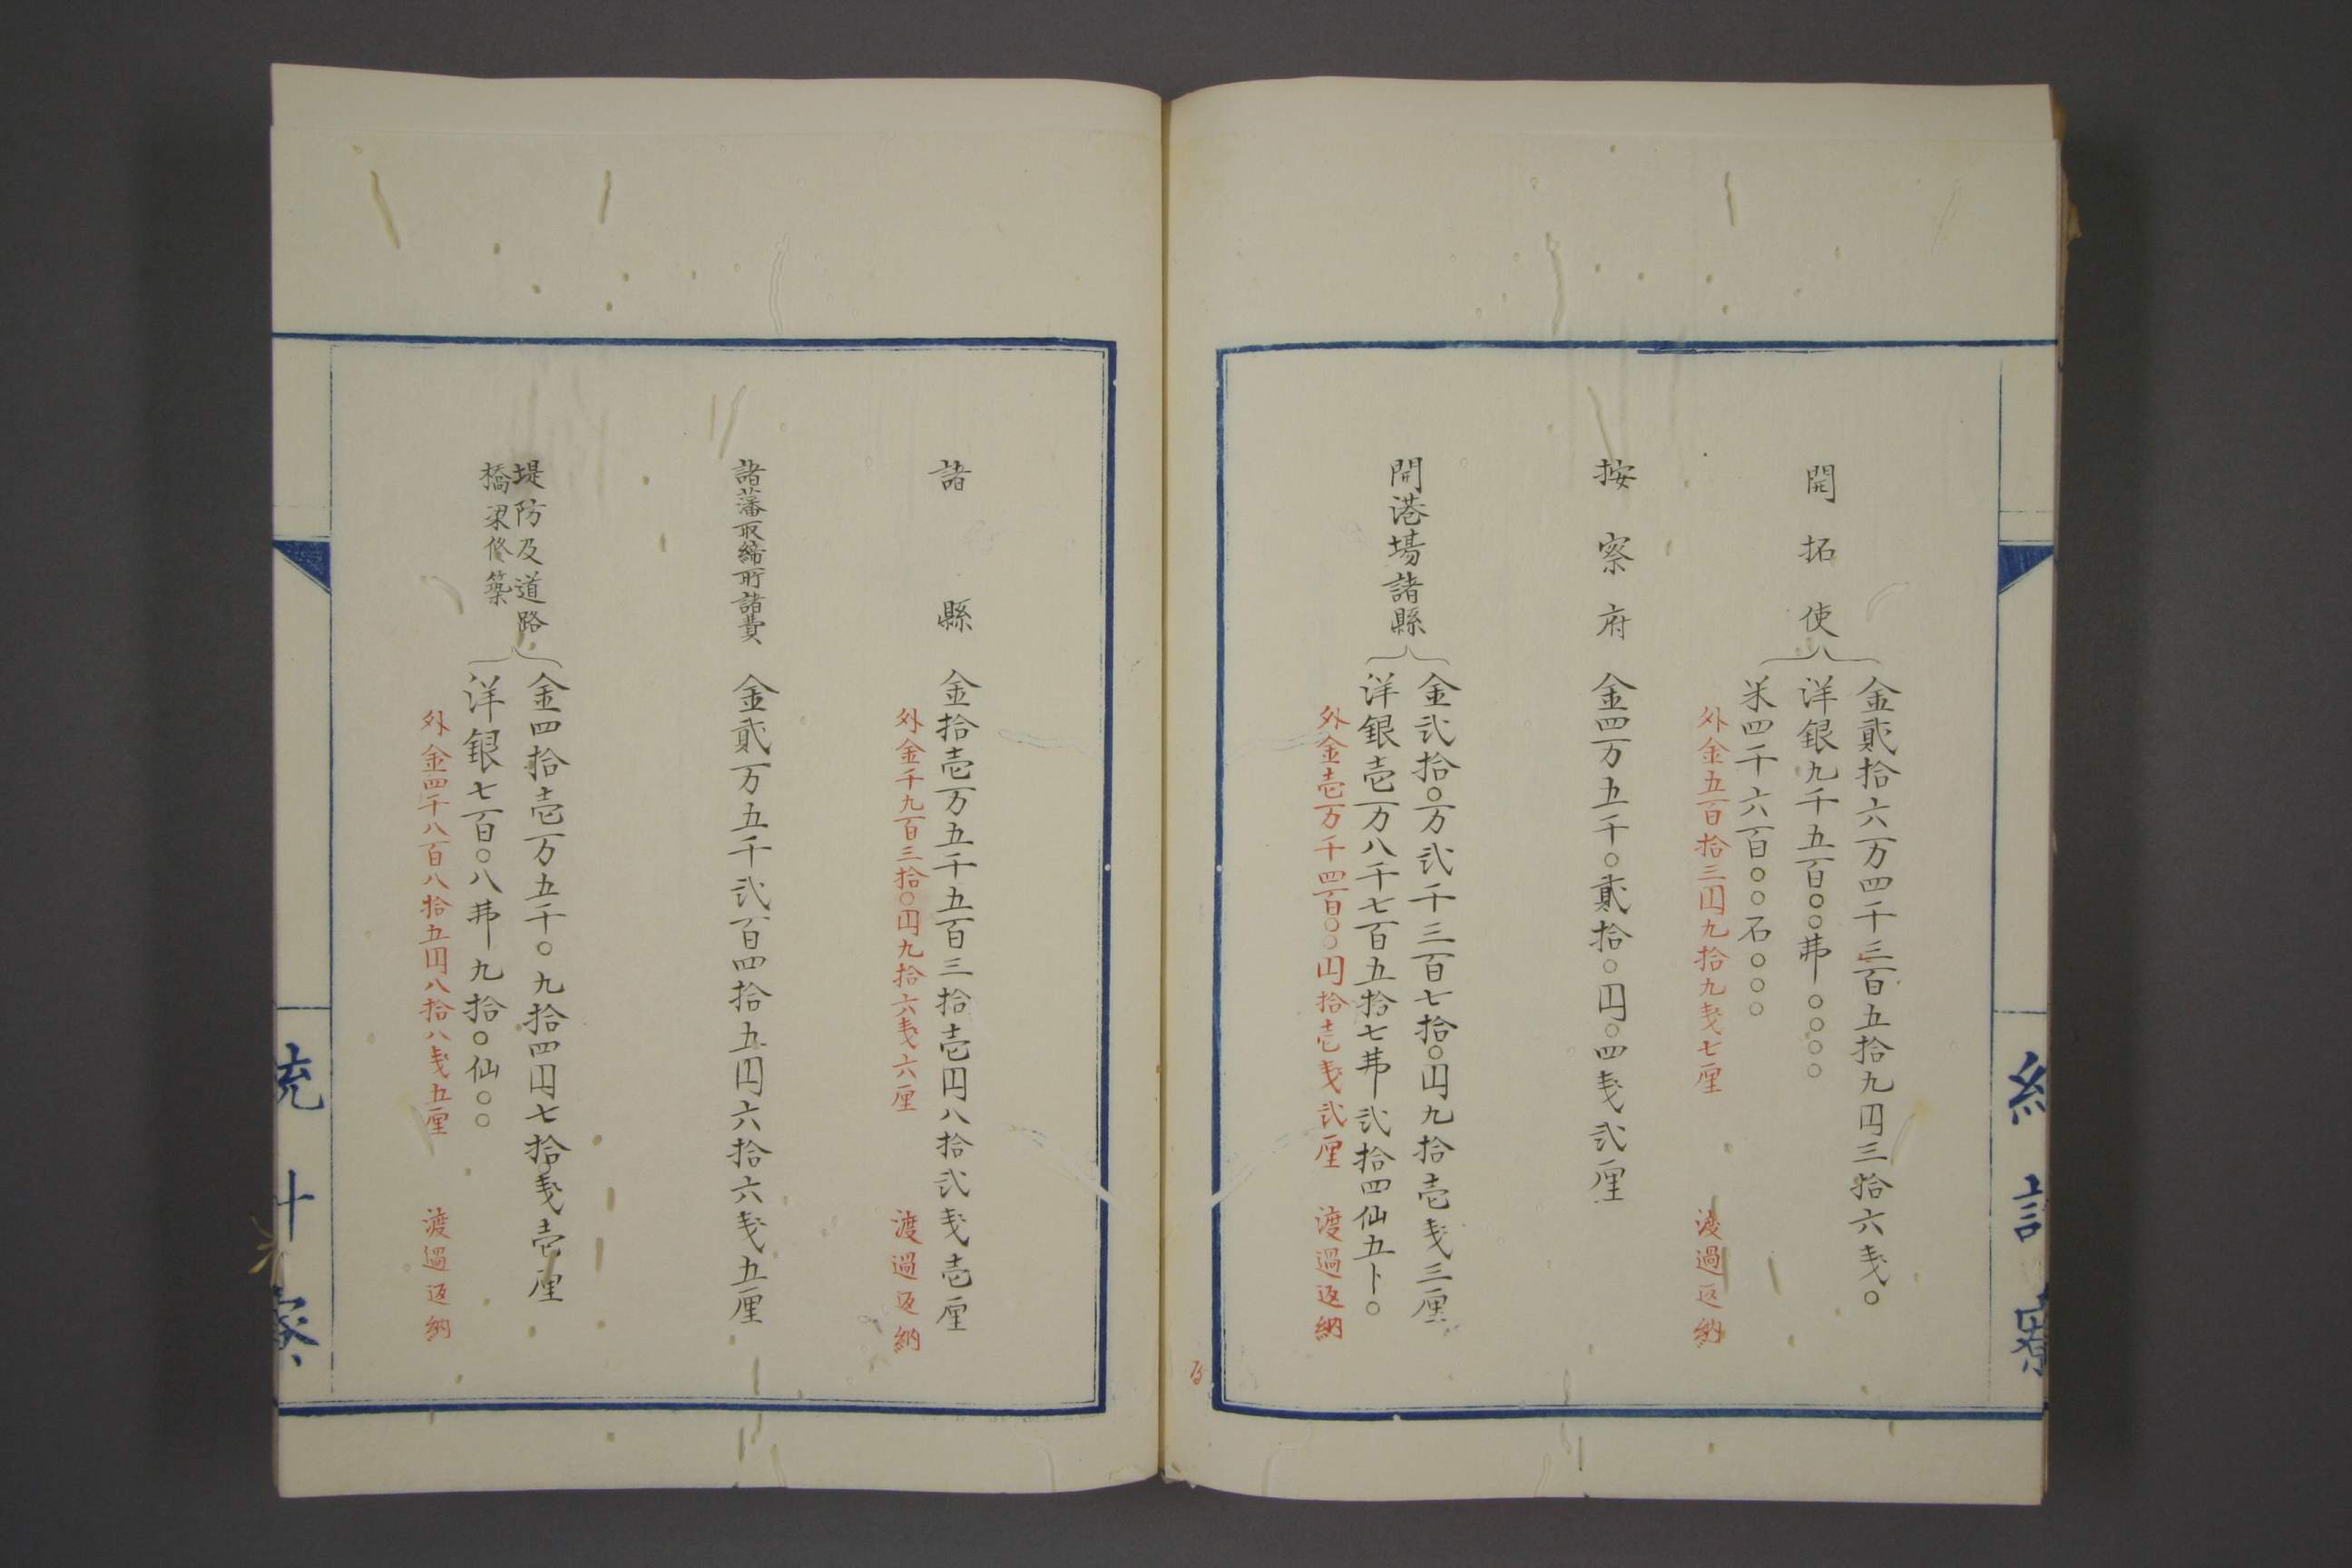 開拓使
金貳拾六万四千三百五拾九円三拾六戋〇
洋銀九千五百〇〇弗〇〇〇〇
米四千六百〇〇石〇〇〇
外金五百拾三円九拾九戋七厘 渡過返納
按察府 金四万五千〇貳拾〇円〇四戋弐厘
開港場諸縣
金弐拾〇万弐千三百七拾〇円九拾壱戋三厘
洋銀壱万八千七百五拾七弗弐拾四仙五卜〇
外金壱万千四百〇〇円拾壱戋弐厘 渡過返納
諸縣 金拾壱万五千五百三拾壱円八拾弐戋壱厘
外金千九百三拾〇円九拾六戋六厘 渡過返納
諸藩取締所諸費 金貳万五千弐百四拾五円六拾六戋五厘
堤防及道路
橋梁修築
金四拾壱万五千〇九拾四円七拾〇戋壱厘
洋銀七百〇八弗九拾〇仙〇〇
外金四千八百八拾五円八拾八戋五厘 渡過返納
統計寮